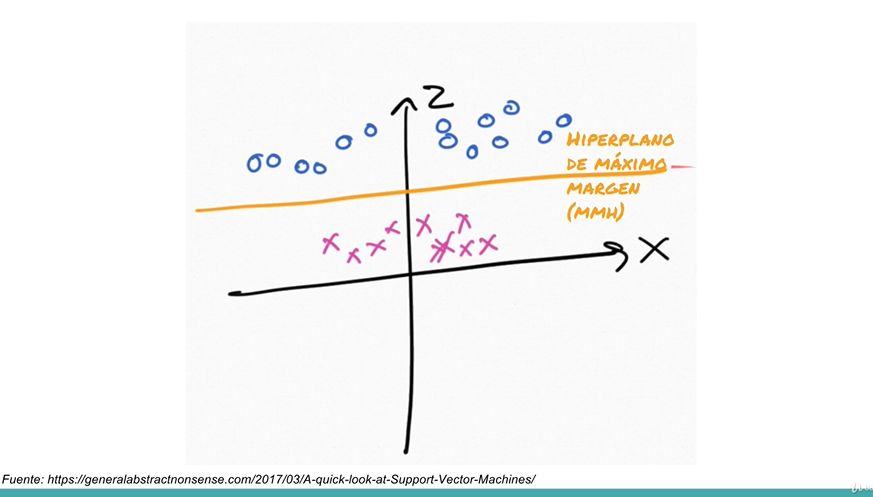 Z
HIPERPLANO
DE MÁXIMO
MARGEN
(MMH)
X
Fuente: https://generalabstractnonsense.com/2017/03/A-quick-look-at-Support-Vector-Machines/